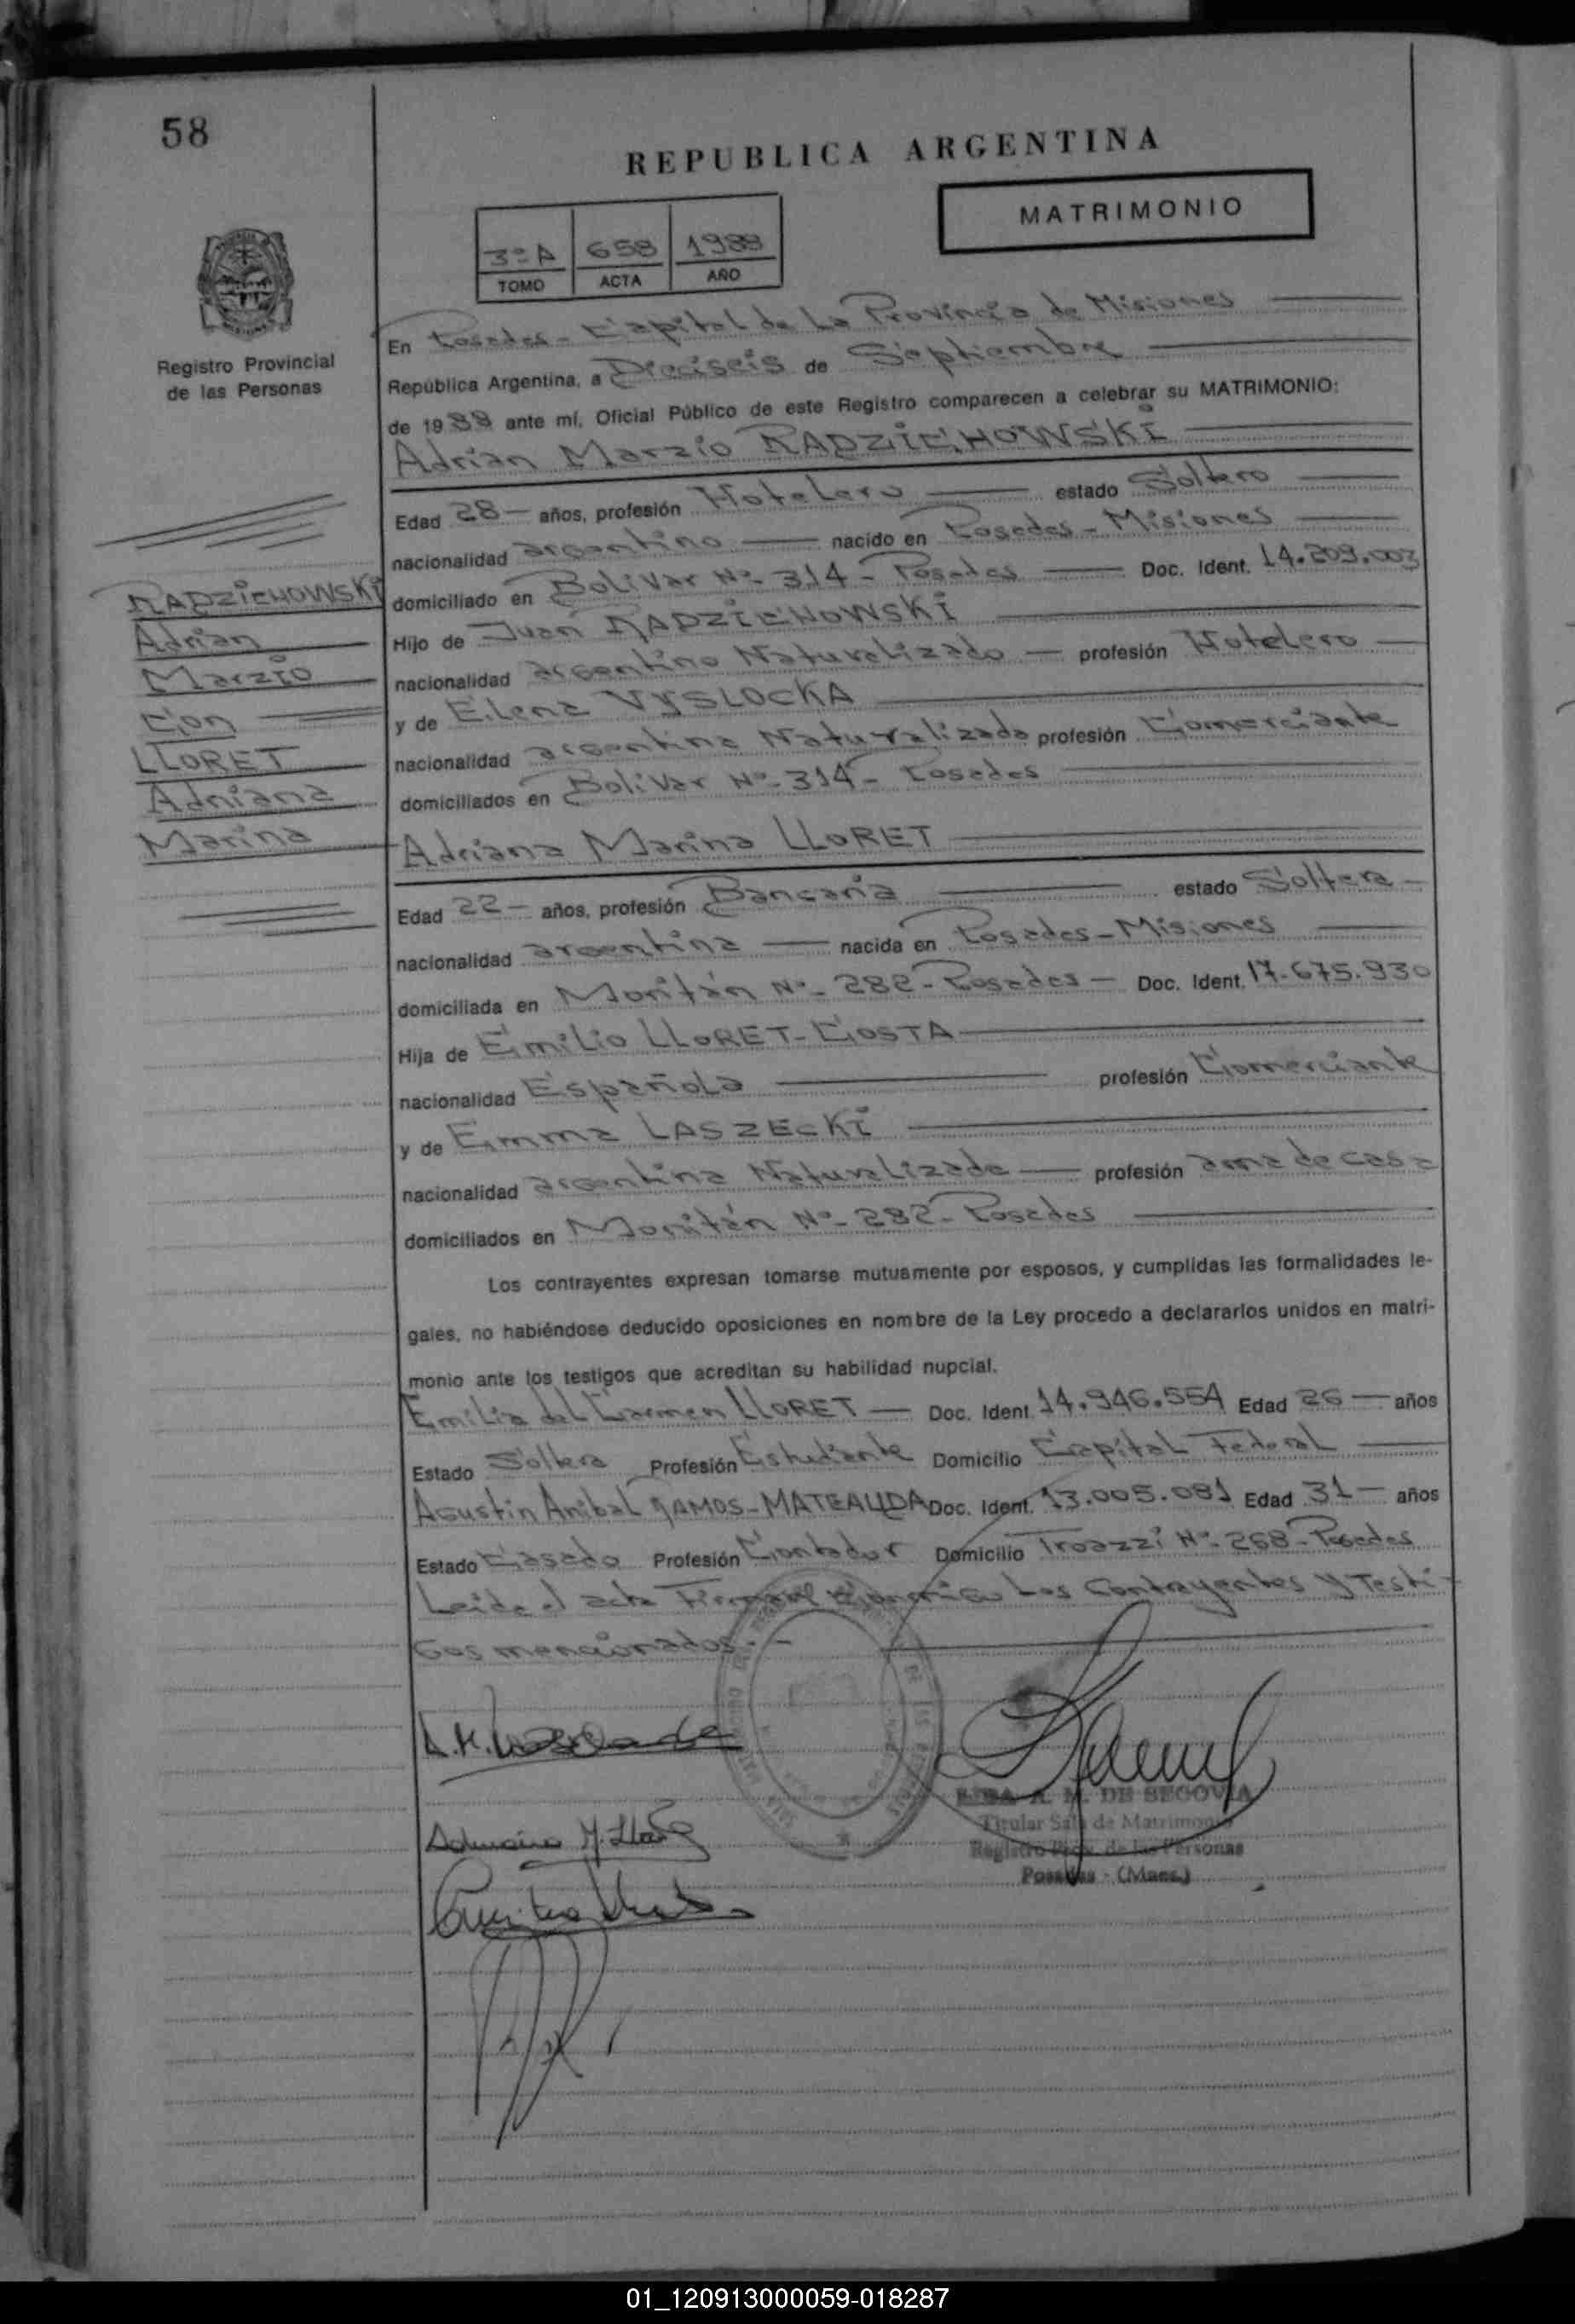 58
REPUBLICA ARGENTINA
MATRIMONIO
3º A 658 1988
TOMO ACTA AÑO
Registro Provincial
de las Personas
En Posadas - Capital de La Provincia de Misiones
República Argentina, a Dieciseis de Septiembre
de 1988 ante mí, Oficial Público de este Registro comparecen a celebrar su MATRIMONIO:
Adrian Marzio RADZIEHOWSKI
Edad 28 - años, profesión Hotelero estado Soltero
nacionalidad argentino nacido en Posadas - Misiones
domiciliado en Bolivar Nº 314 - Posadas Doc. Ident. 14.209.003
Hijo de Juan RADZIEHOWSKI
nacionalidad argentino Naturalizado profesión Hotelero
y de Elena VYSLOCKA
nacionalidad argentina Naturalizada profesión Comerciante
domiciliados en Bolivar Nº 314 - Posadas
Adriana Marina LLORET
Edad 22 - años, profesión Bancaria estado Soltera
nacionalidad argentina nacida en Posadas - Misiones
domiciliada en Nº 282 - Posadas Doc. Ident. 17.675.930
Hija de Emilio LLORET - COSTA
nacionalidad Española profesión Comerciante
y de Emma LASZECKI
nacionalidad argentina Naturalizada profesión ama de casa
domiciliados en Nº 282 - Posadas
Los contrayentes expresan tomarse mutuamente por esposos, y cumplidas las formalidades le-
gales, no habiéndose deducido oposiciones en nombre de la Ley procedo a declararlos unidos en matri-
monio ante los testigos que acreditan su habilidad nupcial.
Emilia del Carmen LLORET Doc. Ident. 14.946.554 Edad 26 - años
Estado Soltera Profesión Estudiante Domicilio Capital Federal
Agustin Anibal RAMOS - MATEAUDA Doc. Ident. 13.005.081 Edad 31 - años
Estado Casado Profesión Contador Domicilio Troazzi Nº 268 - Posadas
Leida el acta Firman Conmigo Los Contrayentes y Testi-
gos mencionados.-
RADZIEHOWSKI
Adrian
Marzio
Con
LLORET
Adriana
Marina
A. M. DE SEGOVIA
Titular Sala de Matrimonio
Registro Prov. de las Personas
Posadas - (Mnes.)
01_120913000059-018287